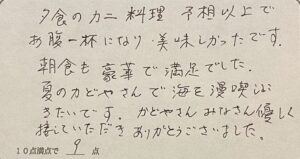 夕食のカニ料理 予想以上で
お腹一杯になり・美味しかったです。
朝食も豪華で満足でした。
夏のかどやさんで海を満喫し
きたいです。かどやさんみなさん優しく
接していただきありがとうございました。
10点満点で 9 点